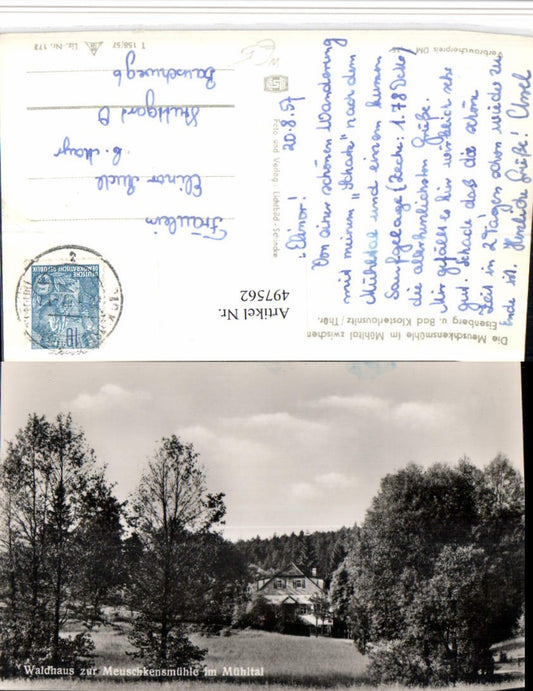 Verbraucherpreis DM
T 158/57
Liz. Nr. 172
Die Meuschkensmühle im Mühltal zwischen
Eisenberg u. Bad Klosterlausnitz / Thür.
20.8.57
Von einer schönen Wanderung
mit meinem "Schatz" nach dem
Mühltal und einem kurzen
Saufgelage (Zeche: 1.78 Deko)
die allerherzlichsten Grüße.
Mir gefällt es hier wirklich sehr
gut. Schade daß die schöne
Zeit in 2 Tagen schon wieder zu
Ende ist. Herzliche Grüße!
Foto und Verlag: Lichtbild-
Fräulein
Elinor
b. Mayr
Stuttgart O
DEUTSCHE
DEMOKRATISCHE REPUBLIK
10
Artikel Nr.
497562
Waldhaus zur Meuschkensmühle im Mühltal